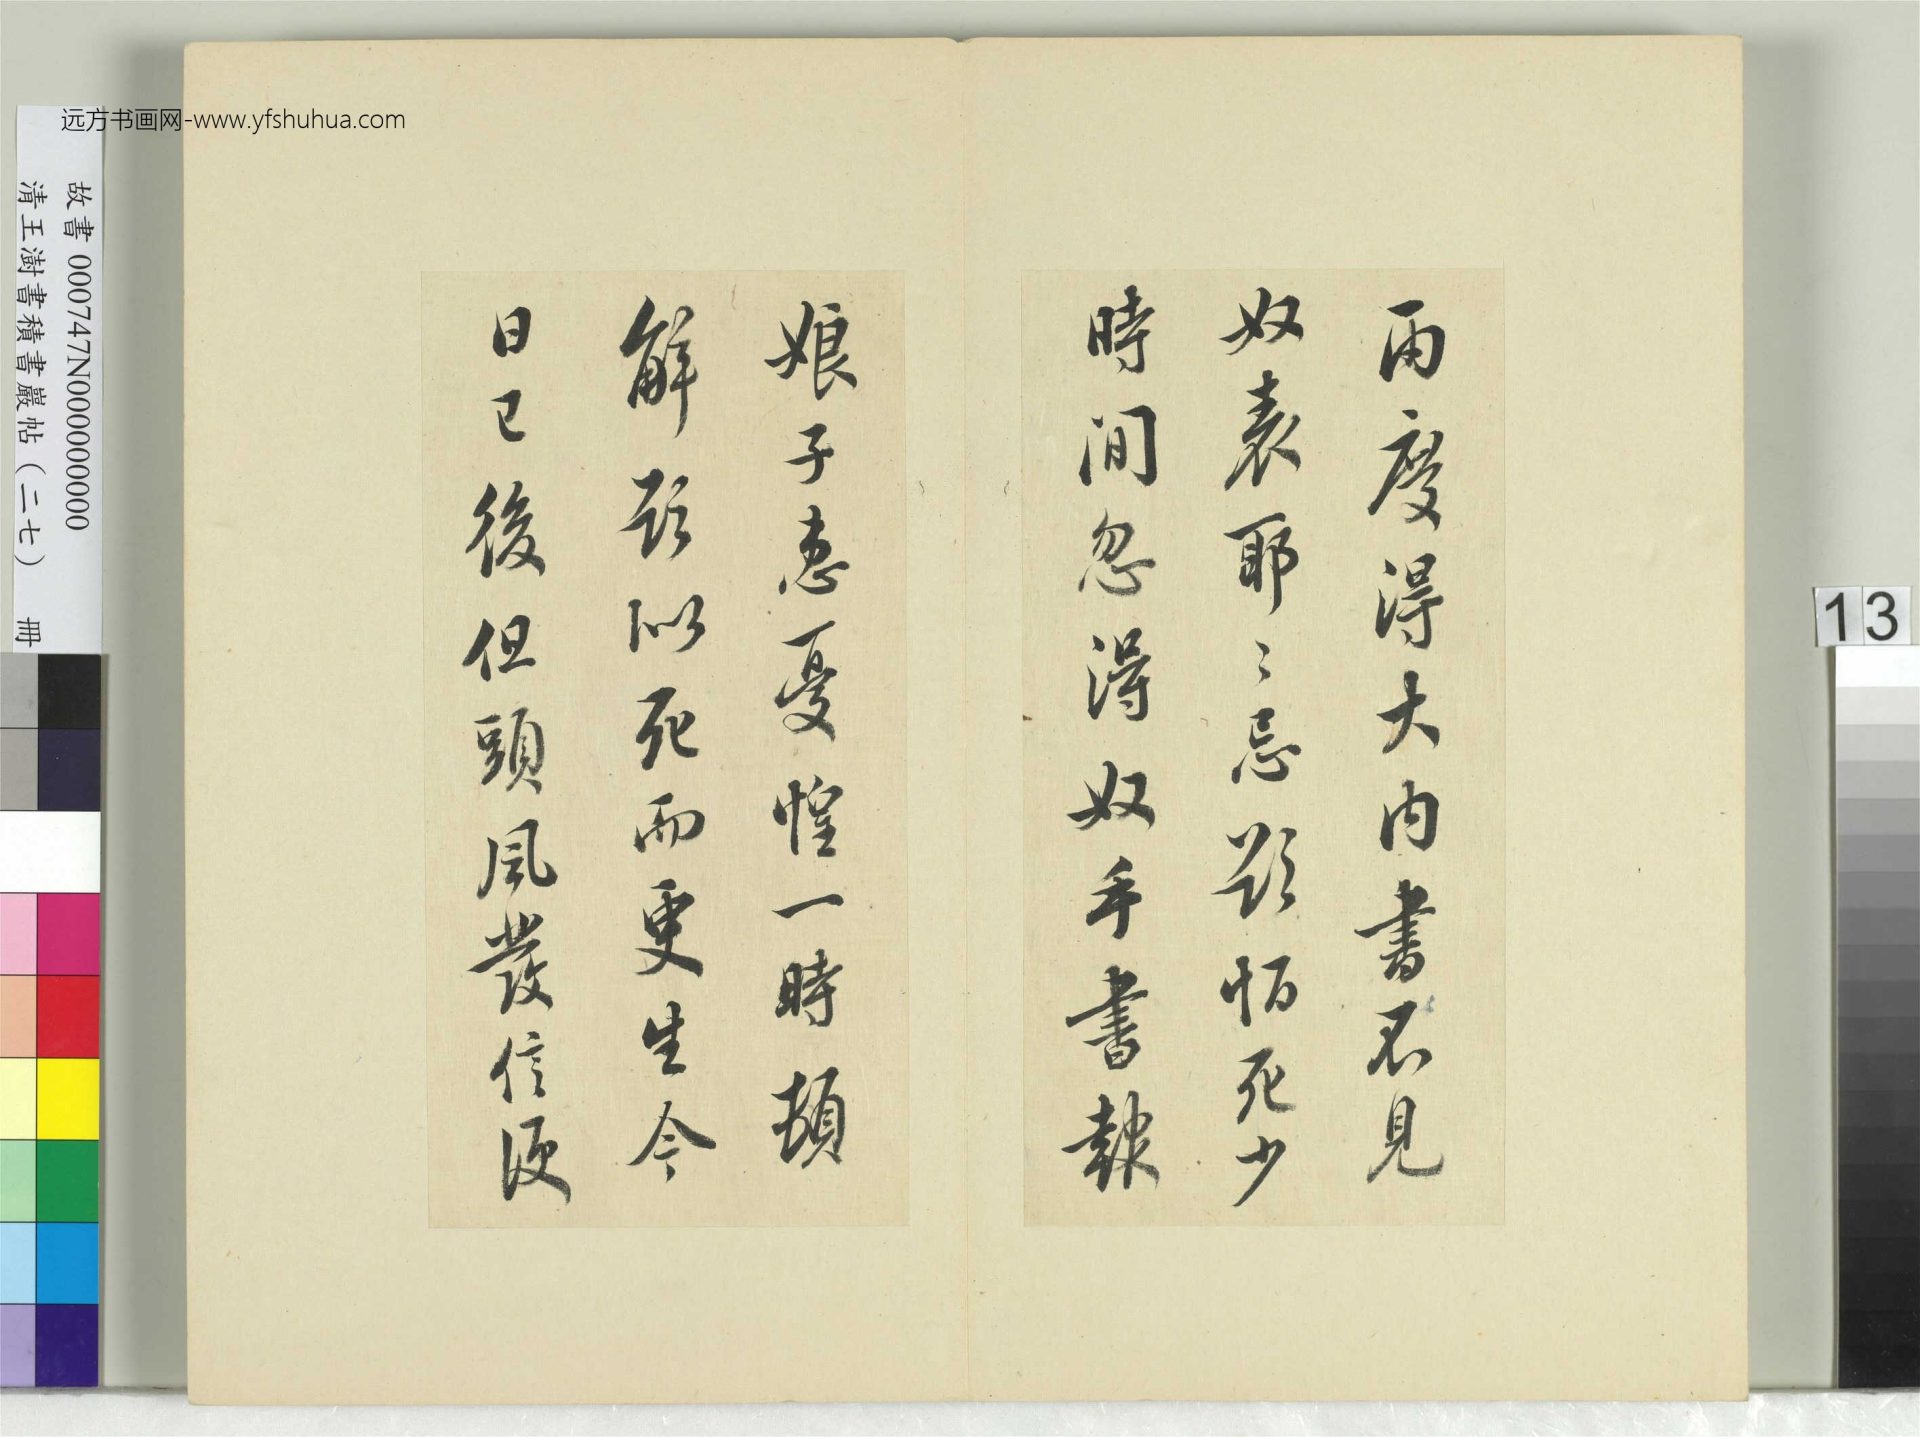 远方书画网-www.yfshuhua.com
故書 000747N000000000
清王澍書積書巖帖（二七） 冊
13
兩度得大內書不見
奴表耶〻忌欲恒死少
時間忽得奴手書報
娘子患憂惶一時頓
解欲似死而更生今
日已後但頭風發信便